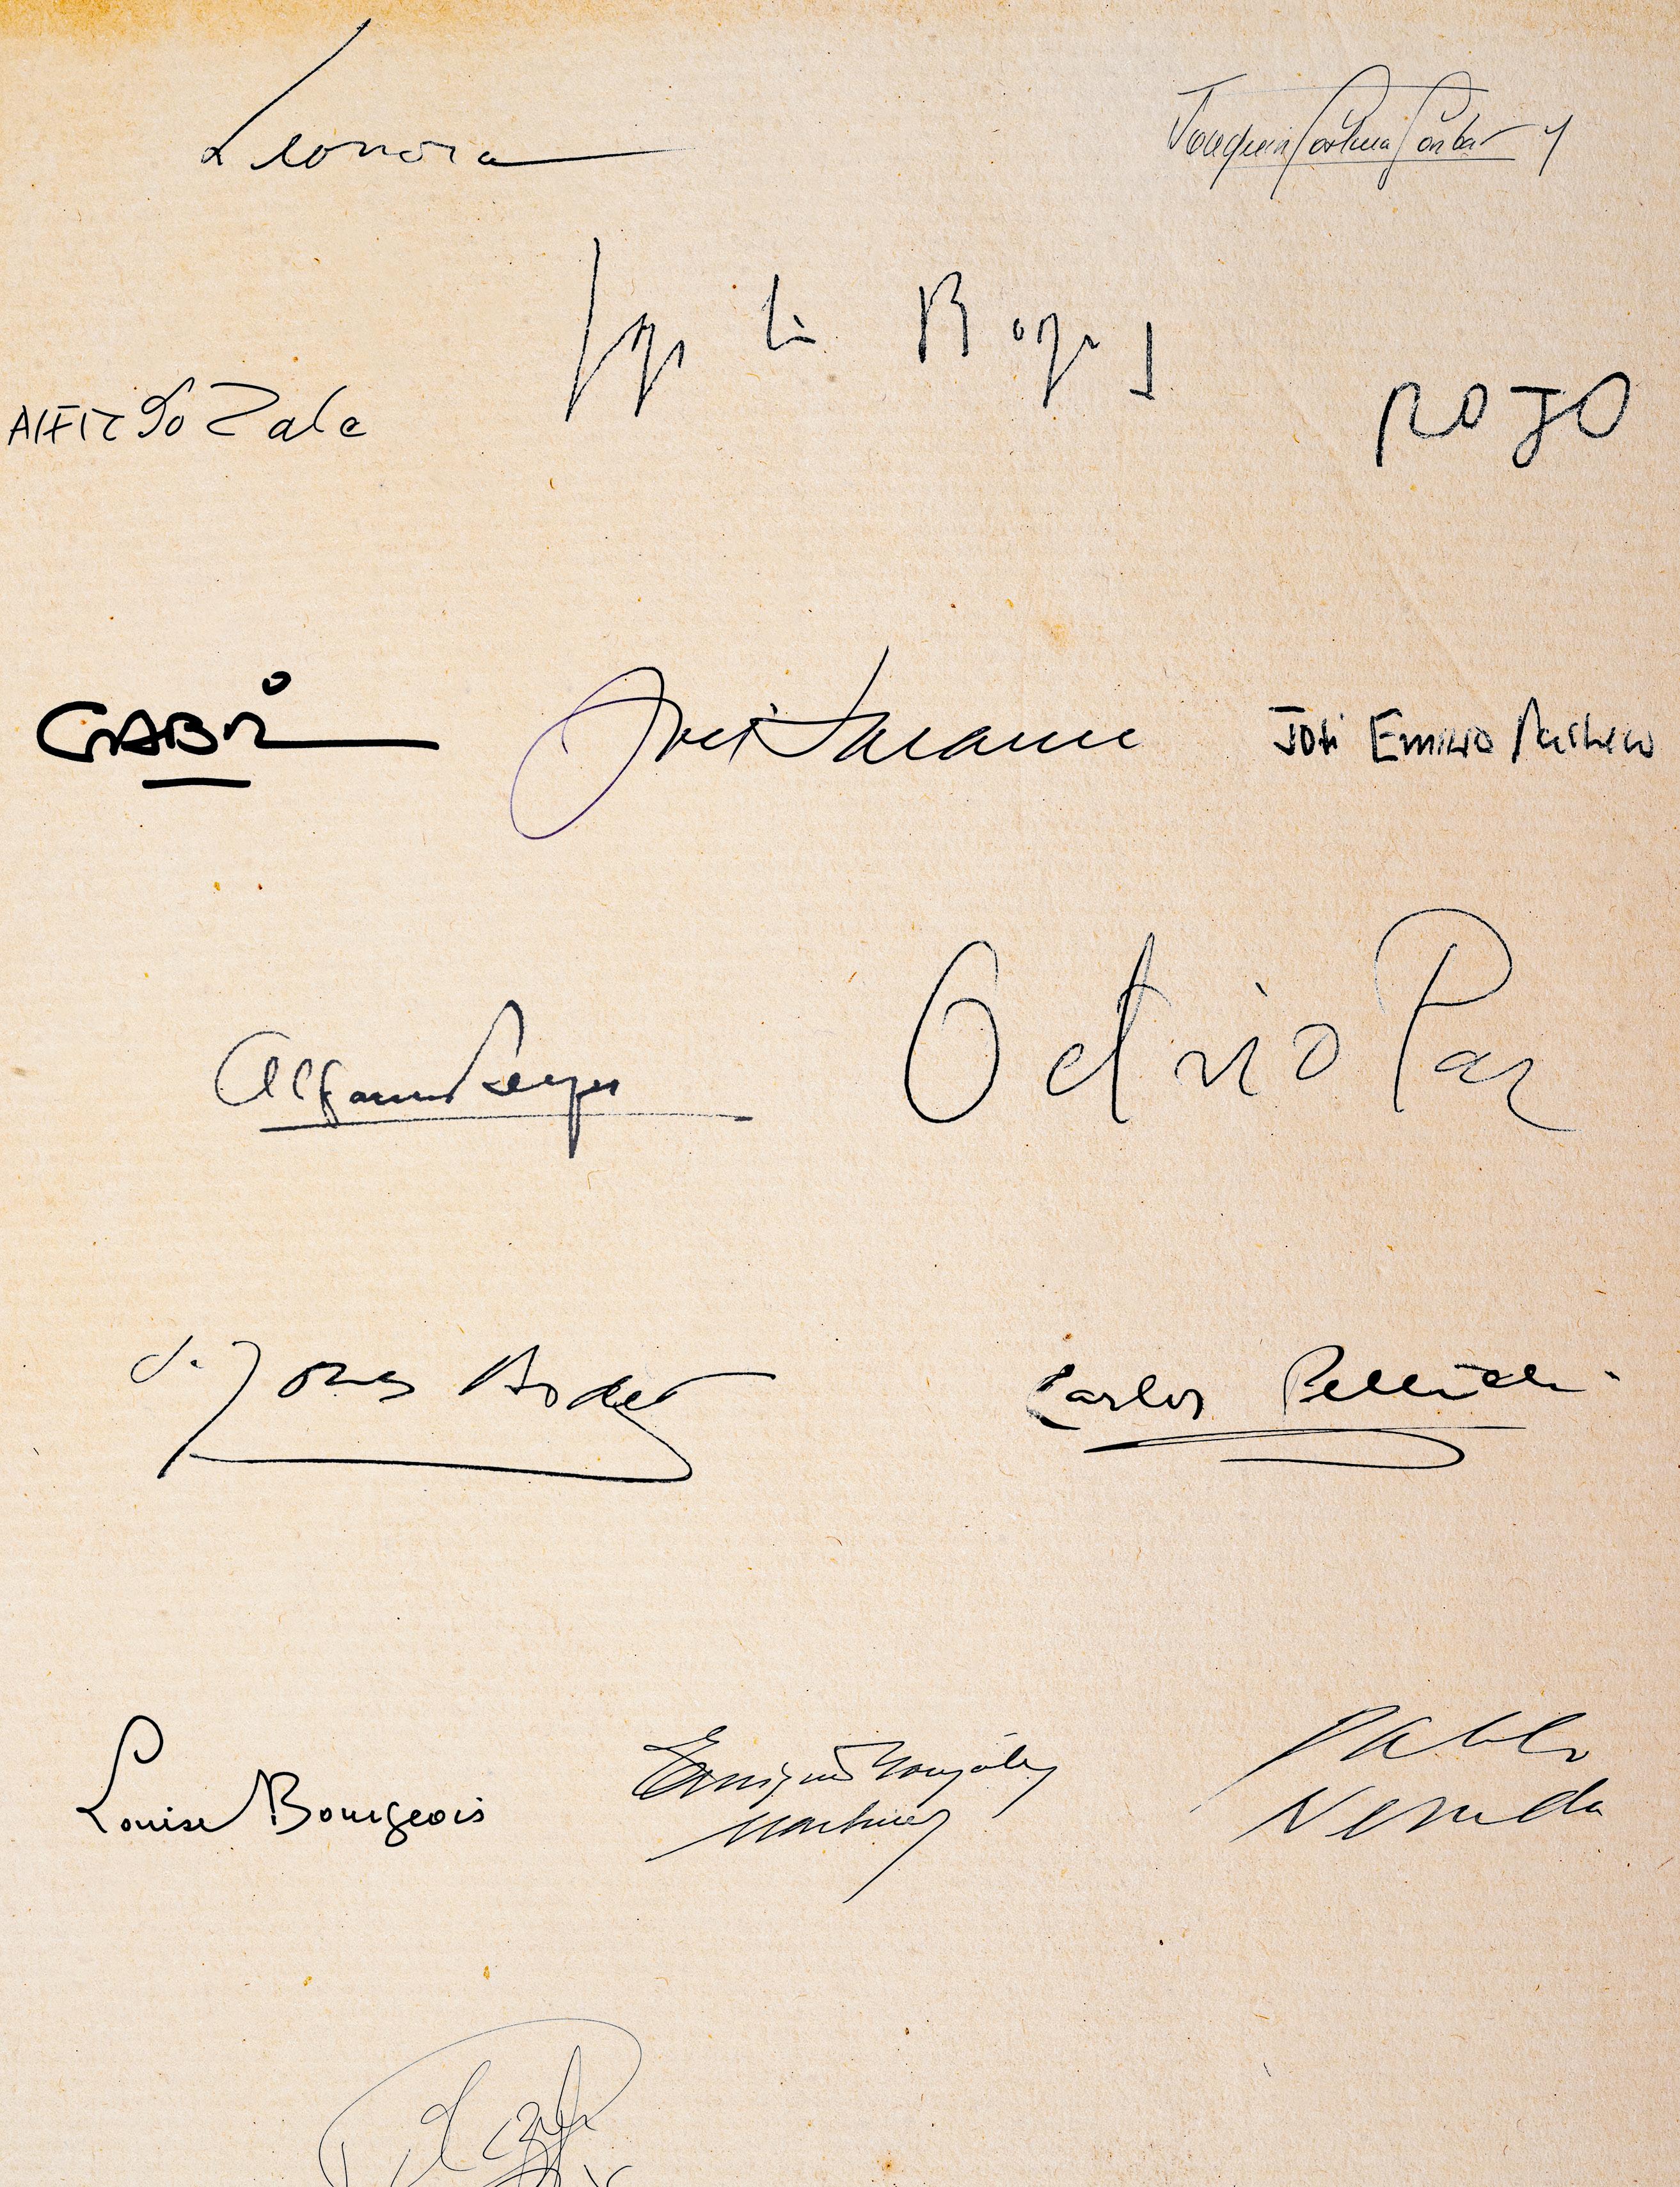 Leonora
Joaquín Cortina Goríbar
Jorge Luis Borges
Alfredo Zalce
ROJO
GABO
José Saramago
José Emilio Pacheco
Alfonso Reyes
Octavio Paz
J. Torres Bodet
Carlos Pellicer
Louise Bourgeois
Enrique González
Martínez
Pablo
Neruda